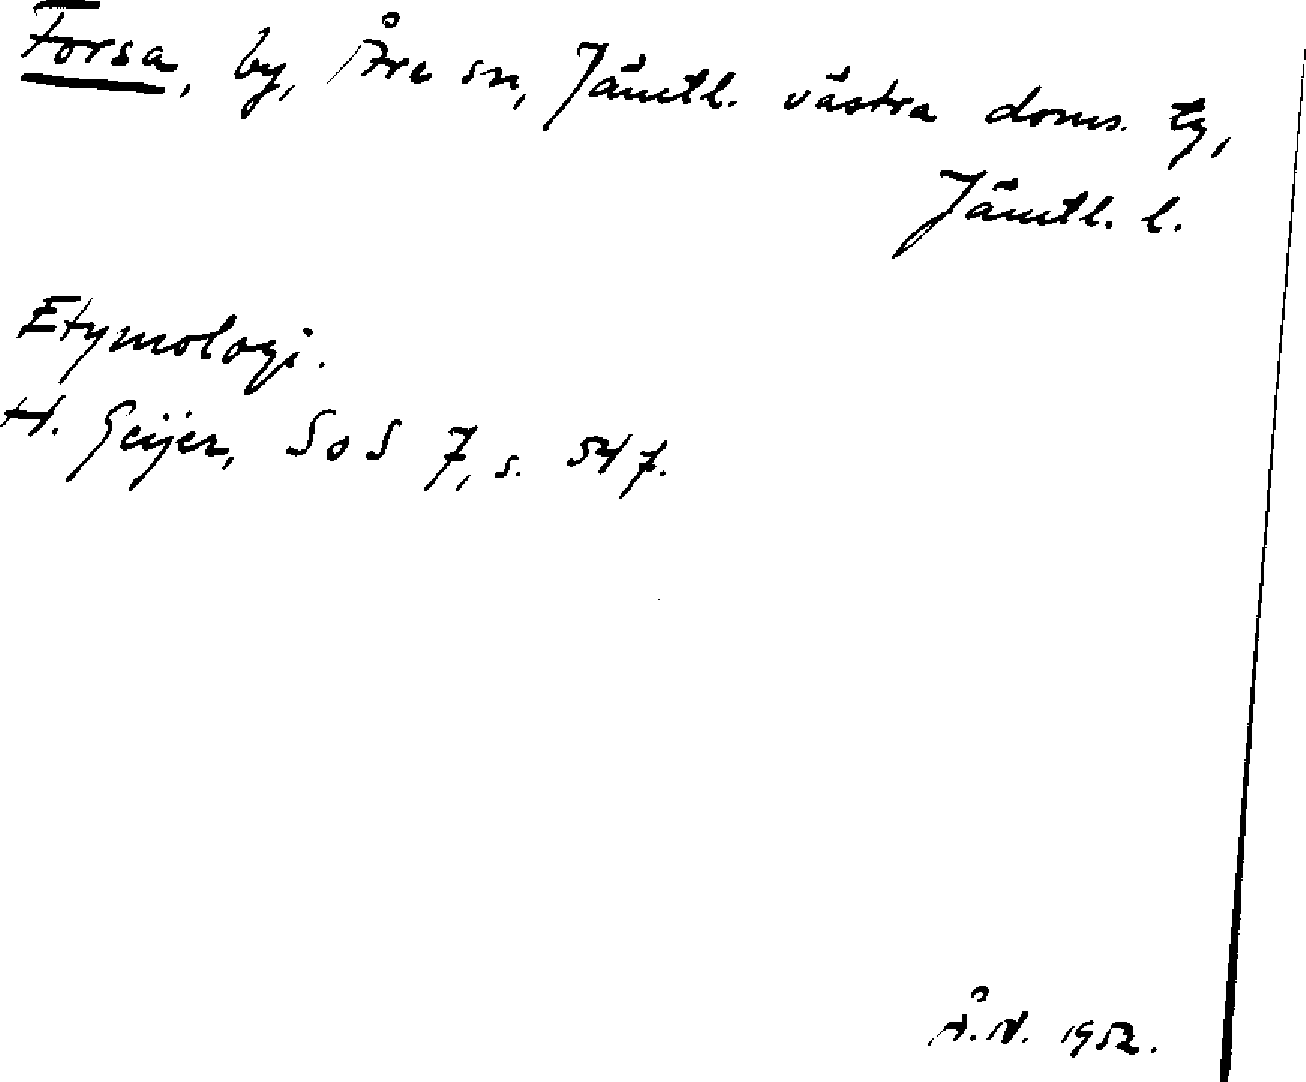 Forsa, by, Åre sn, Jämtl. västra doms. tg,
Jämtl. l.
Etymologi.
H. Geijer, SoS 7, s. 547.
Å.N. 1952.